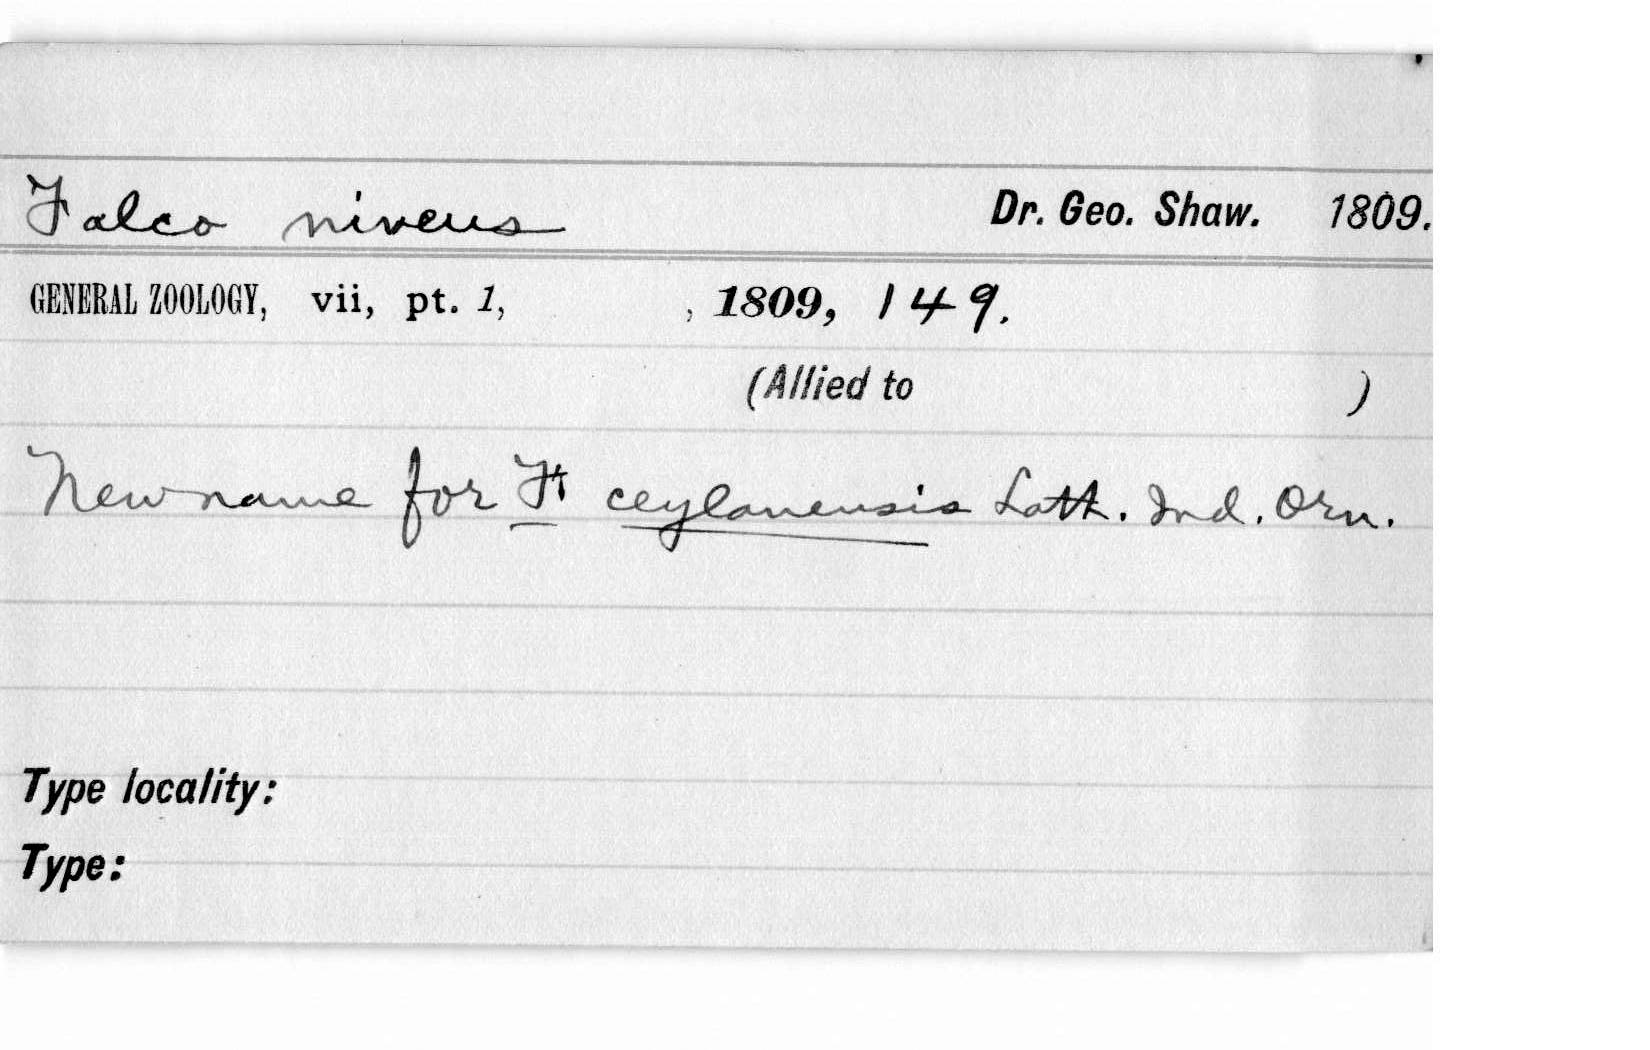 Falco niveus Dr. Geo. Shaw. 1809.
GENERAL ZOOLOGY, vii, pt. 1, , 1809, 149.
(Allied to )
New name for F. ceylanensis Lath. Ind. Orn.
Type locality:
Type: